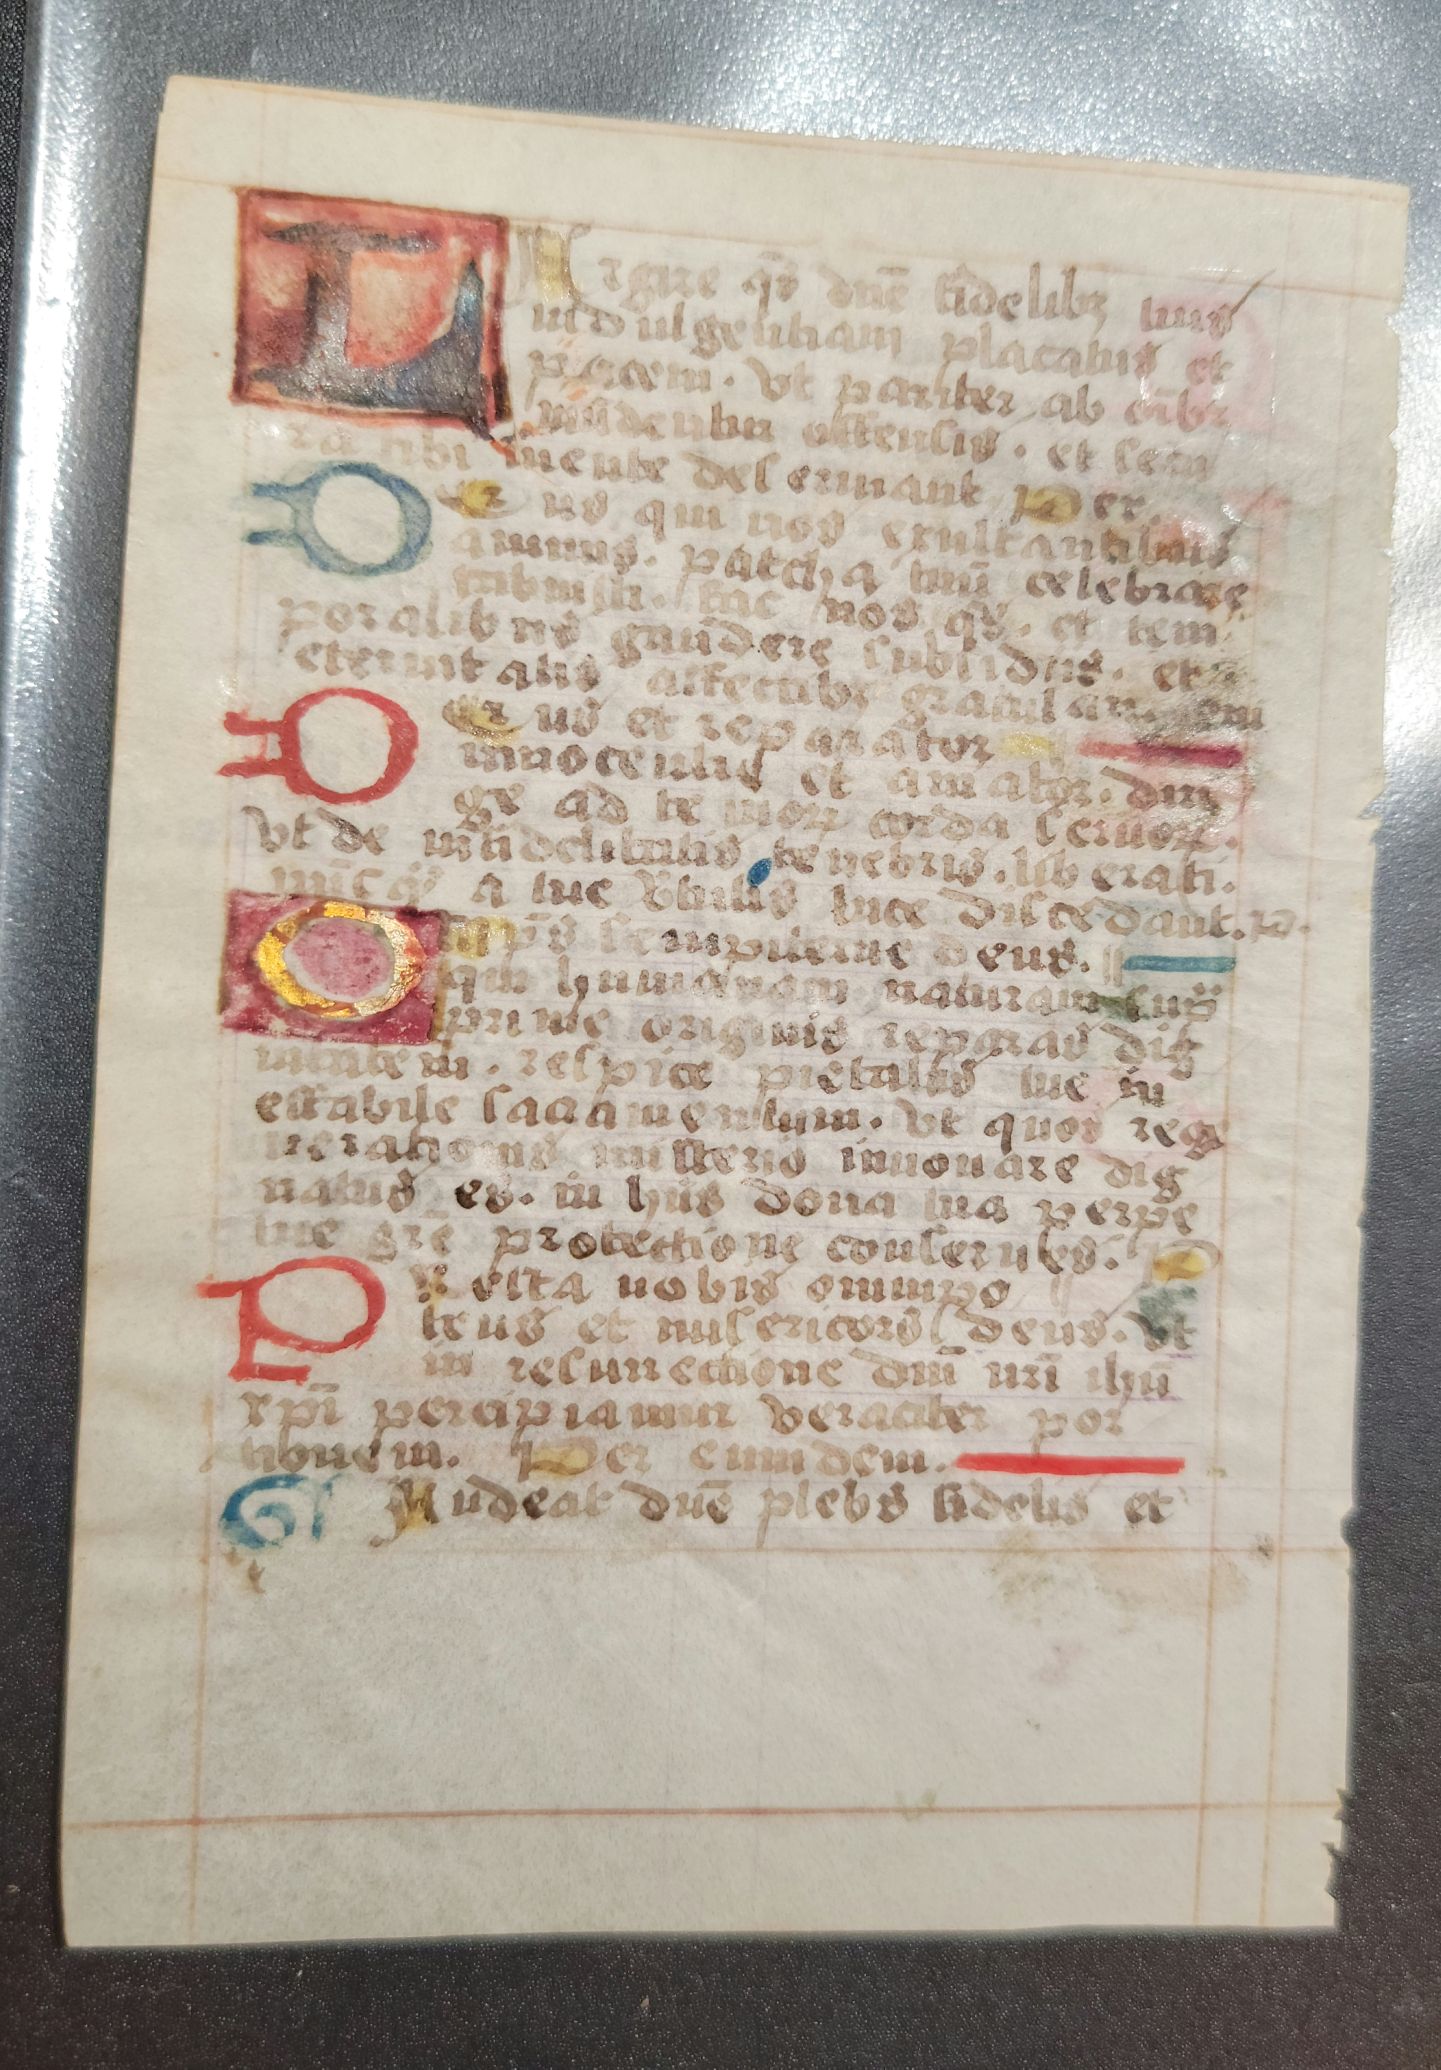 L Argire qs dne fidelibz tuis
indulgentiam placatus et
pacem. vt pariter ab oibz
mundentur offensis. et secu
ra tibi mente deseruiant Per
D Eus qui nos exultantibus
animis. pascha tuu celebrare
tribuisti. fac nos qs. et tem
poralibus gaudere subsidiis. et
eternitatis affectibz gratulari.
D Eus et reparator
innocentis et amator. diri
ge ad te tuorz corda seruorz.
vt de infidelitatis tenebris. liberati.
a tue vitatis luce discedant. p.
O mps sempiterne deus.
qui humanam naturam sup
prime originis reparas dig
nitatem. respice pietatis tue in
effabile sacramentum. vt quos rege
nerationis misterio innouare dig
natus es. in hiis dona tua perpe
tue gre protectione conserues. P
P Resta nobis omnipo
tens et misericors deus. vt
in resurrectione dni nri ihu
xpi percipiamur veraciter por
tionem. Per eumdem.
G Audeat dne plebs fidelis et